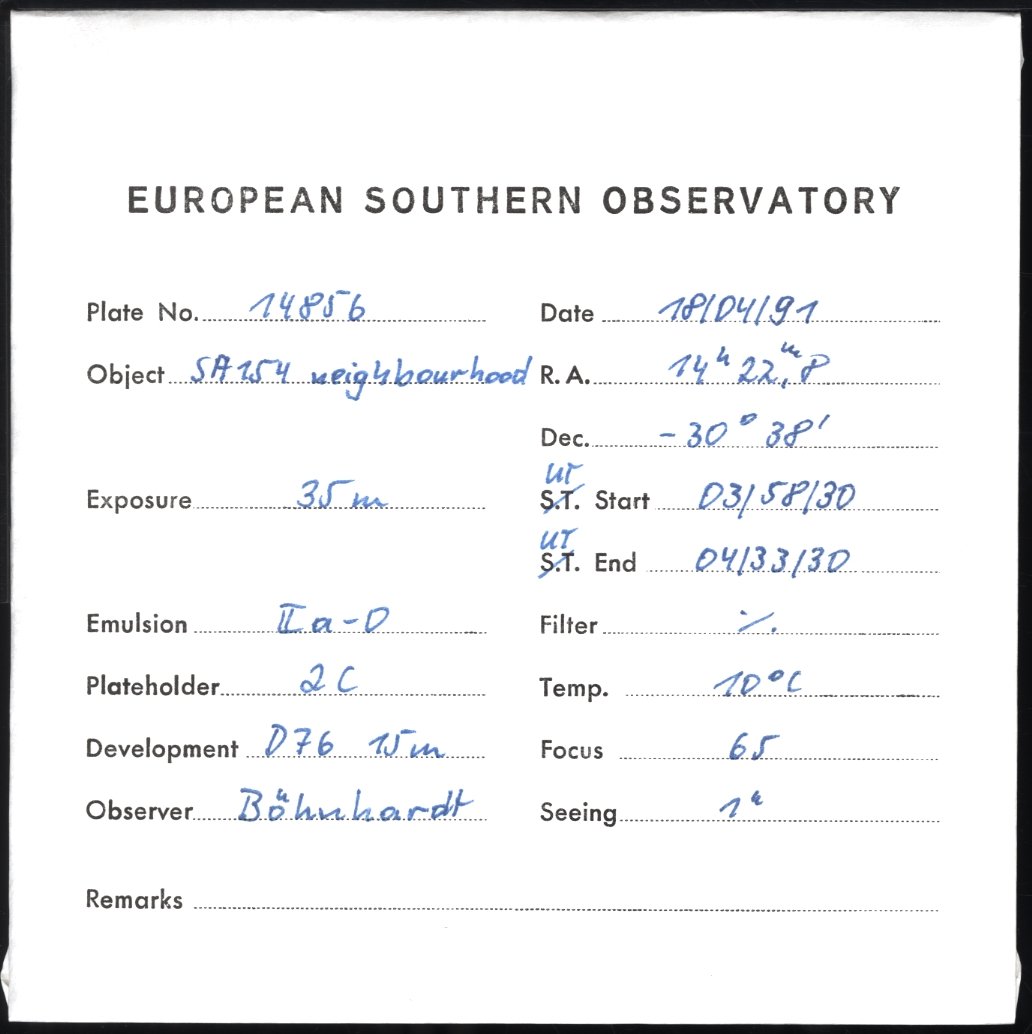 EUROPEAN SOUTHERN OBSERVATORY
Plate No. 14856 Date 18/04/91
Object SA 154 neighbourhood R.A. 14h 22,m8
Dec. -30° 38'
Exposure 35m UT S.T. Start 03/58/30
UT S.T. End 04/33/30
Emulsion IIa-D Filter ./.
Plateholder 2C Temp. 10°C
Development D76 15m Focus 65
Observer Böhnhardt Seeing 1"
Remarks